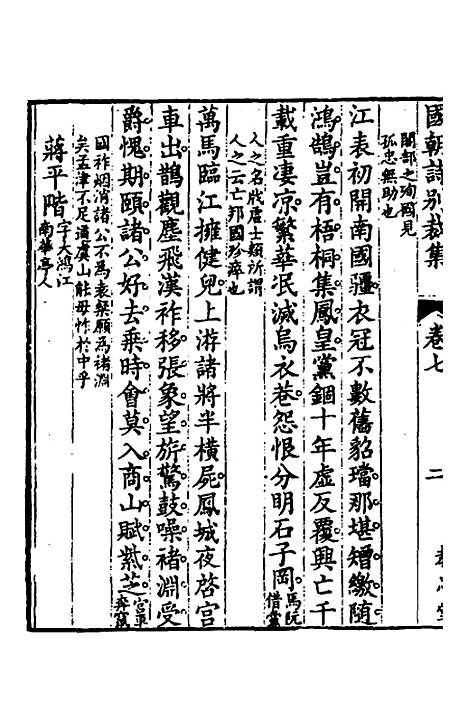 國朝詩別裁集 卷七 二
閣部之殉國見
孤忠無助也
江表初開南國疆衣冠不數舊貂璫那堪矰繳隨
鴻鵠豈有梧桐集鳳皇黨錮十年虛反覆興亡千
載重淒凉繁華泯滅烏衣巷怨恨分明石子岡馬阮
借黨
人之名戕虐士類所謂
人之云亡邦國殄瘁也
萬馬臨江擁健兒上游諸將半橫屍鳳城夜啓宮
車出鵲觀塵飛漢祚移張象望旂驚鼓噪褚淵受
爵愧期頤諸公好去乘時會莫入商山賦紫芝宮車
奔竄
國祚烟消諸公不爲袁粲願爲褚淵
矣孟津不足道虞山能毋怍於中乎
蔣平階字大鴻江
南華亭人